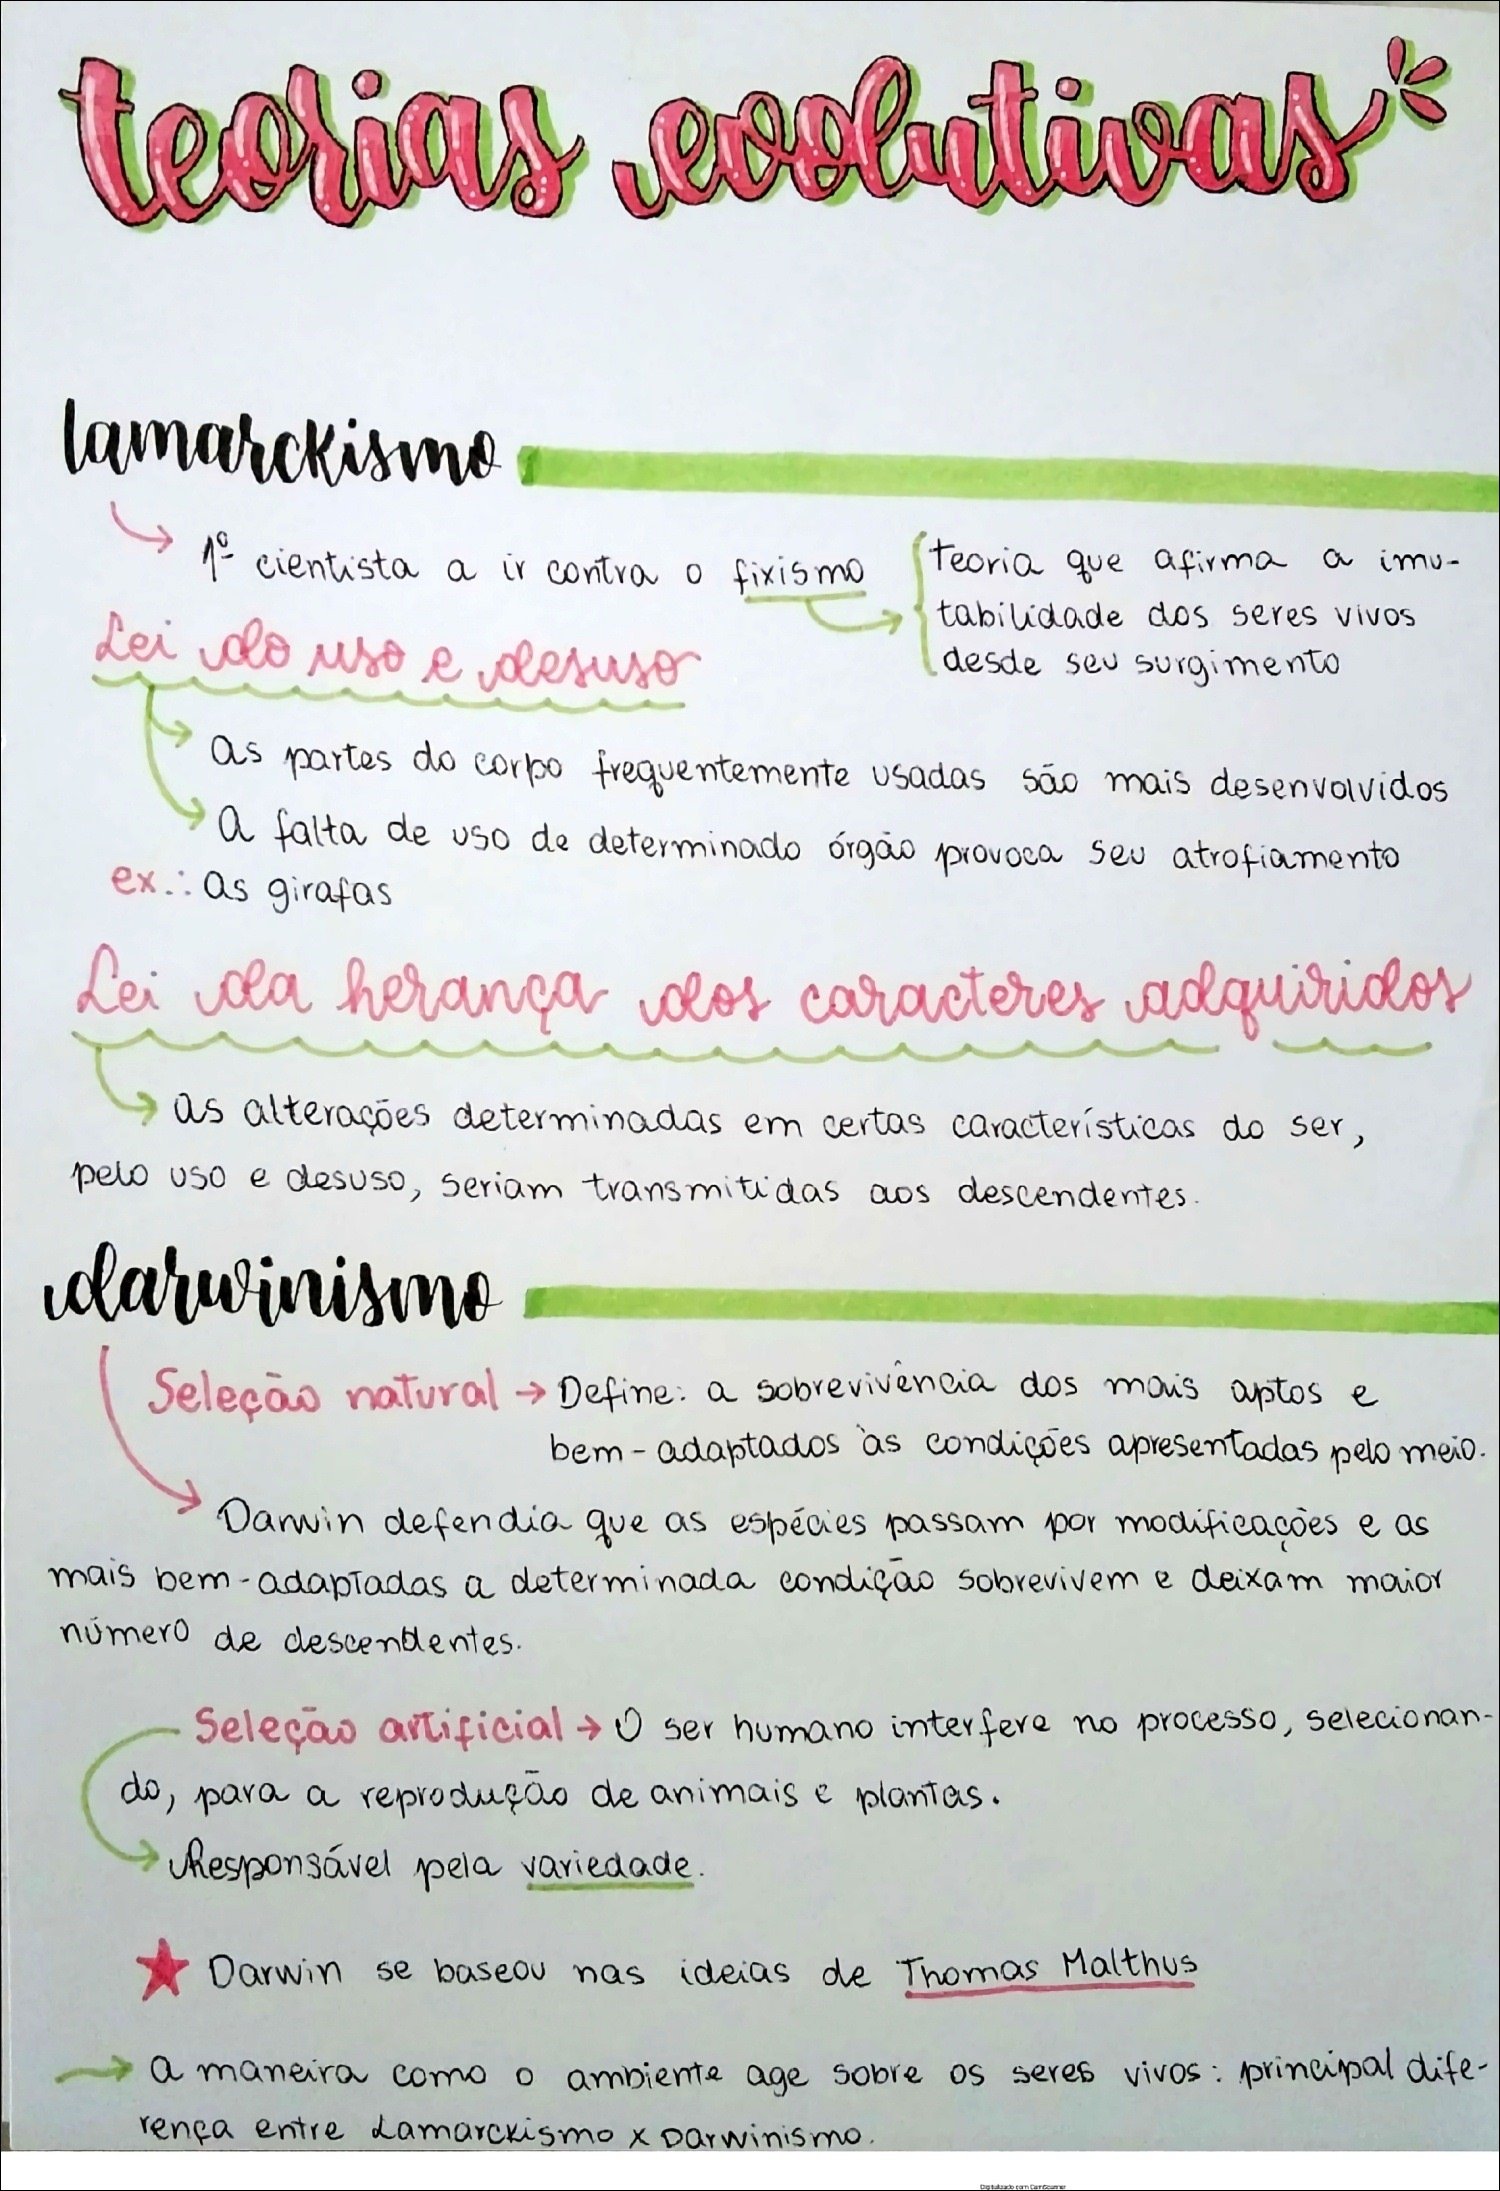 teorias evolutivas
lamarckismo
1º cientista a ir contra o fixismo
teoria que afirma a imu-
tabilidade dos seres vivos
desde seu surgimento
Lei do uso e desuso
As partes do corpo frequentemente usadas são mais desenvolvidos
A falta de uso de determinado órgão provoca seu atrofiamento
ex.: As girafas
Lei da herança dos caracteres adquiridos
As alterações determinadas em certas características do ser,
pelo uso e desuso, seriam transmitidas aos descendentes.
darwinismo
Seleção natural → Define: a sobrevivência dos mais aptos e
bem-adaptados às condições apresentadas pelo meio.
Darwin defendia que as espécies passam por modificações e as
mais bem-adaptadas a determinada condição sobrevivem e deixam maior
número de descendentes.
Seleção artificial → O ser humano interfere no processo, selecionan-
do, para a reprodução de animais e plantas.
Responsável pela variedade.
Darwin se baseou nas ideias de Thomas Malthus
→ A maneira como o ambiente age sobre os seres vivos: principal dife-
rença entre Lamarckismo x Darwinismo.
Digitalizado com CamScanner